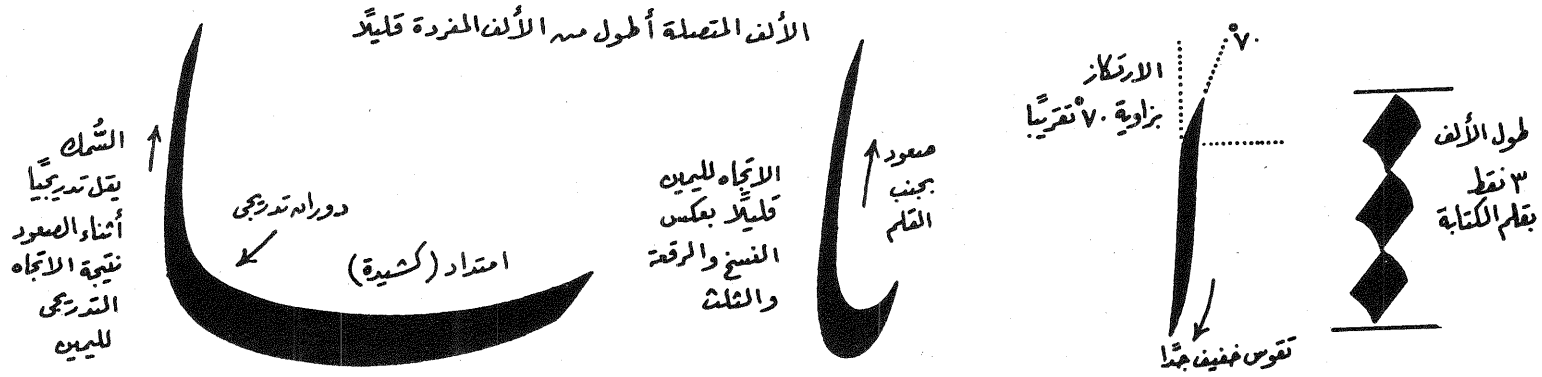 الألف المتصلة أطول من الألف المفردة قليلًا
طول الألف
٣ نقط
بقلم الكتابة
٧٠°
الارتكاز
بزاوية ٧٠° تقريبًا
تقوس خفيف جدًّا
صعود
بجنب
القلم
الاتجاه لليمين
قليلًا بعكس
النسخ والرقعة
والثلث
امتداد (كشيدة)
دوران تدريجى
السُّمك
يقل تدريجيًا
أثناء الصعود
نتيجة الاتجاه
التدريجى
لليمين